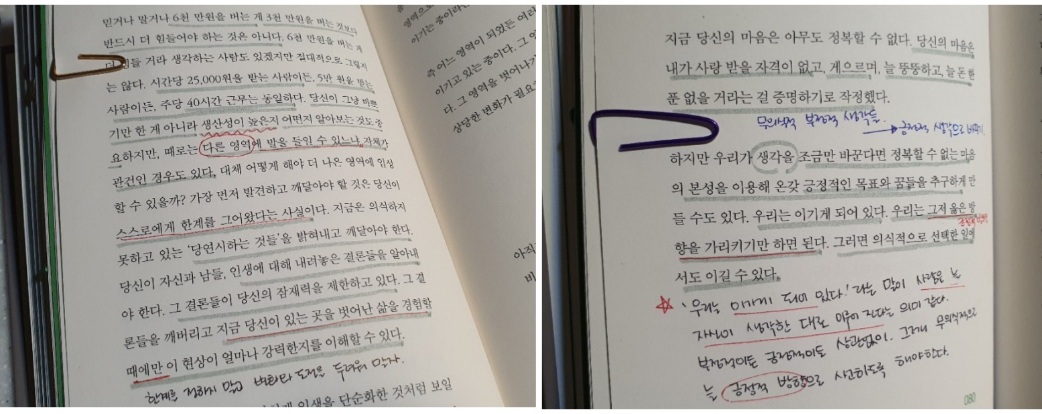 믿거나 말거나 6천 만원을 버는 게 3천 만원을 버는 것보다
반드시 더 힘들어야 하는 것은 아니다. 6천 만원을 버는 게
더 힘들 거라 생각하는 사람도 있겠지만 절대적으로 그렇지
는 않다. 시간당 25,000원을 받는 사람이든, 5만 원을 받는
사람이든, 주당 40시간 근무는 동일하다. 당신이 그냥 바쁘
기만 한 게 아니라 생산성이 높은지 어떤지 알아보는 것도 중
요하지만, 때로는 다른 영역에 발을 들인 수 있느냐 자체가
관건인 경우도 있다. 대체 어떻게 해야 더 나은 영역에 입성
할 수 있을까? 가장 먼저 발견하고 깨달아야 할 것은 당신이
스스로에게 한계를 그어왔다는 사실이다. 지금은 의식하지
못하고 있는 '당연시하는 것들'을 밝혀내고 깨달아야 한다.
당신이 자신과 남들, 인생에 대해 내려놓은 결론들을 알아내
야 한다. 그 결론들이 당신의 잠재력을 제한하고 있다. 그 결
론들을 깨버리고 지금 당신이 있는 곳을 벗어난 삶을 경험할
때에만 이 현상이 얼마나 강력한지를 이해할 수 있다.
한계를 정하지 말고 변화와 도전을 두려워 말자.
인생을 단순화한 것처럼 보일
영역으로
이기는 중이라
즉 어느 영역이 되었든 여러
이기고 있는 중이다. 그
다. 그 영역을 벗어나
상당한 변화가 필요
아직
비
지금 당신의 마음은 아무도 정복할 수 없다. 당신의 마음은
내가 사랑 받을 자격이 없고, 게으르며, 늘 뚱뚱하고, 늘 돈 한
푼 없을 거라는 걸 증명하기로 작정했다.
무의식적 부정적 생각들. → 긍정적 생각으로
하지만 우리가 생각을 조금만 바꾼다면 정복할 수 없는 마음
의 본성을 이용해 온갖 긍정적인 목표와 꿈들을 추구하게 만
들 수도 있다. 우리는 이기게 되어 있다. 우리는 그저 옳은 방
향을 가리키기만 하면 된다. 그러면 의식적으로 선택한 일에
서도 이길 수 있다.
'우리는 이기게 되어 있다.' 라는 말이 사람은 늘
자신이 생각한 대로 이루어진다는 의미 같다.
부정적이든 긍정적이든 상관없이. 그러게 무의식적으로
늘 긍정적 방향으로 사고하도록 해야한다.
080